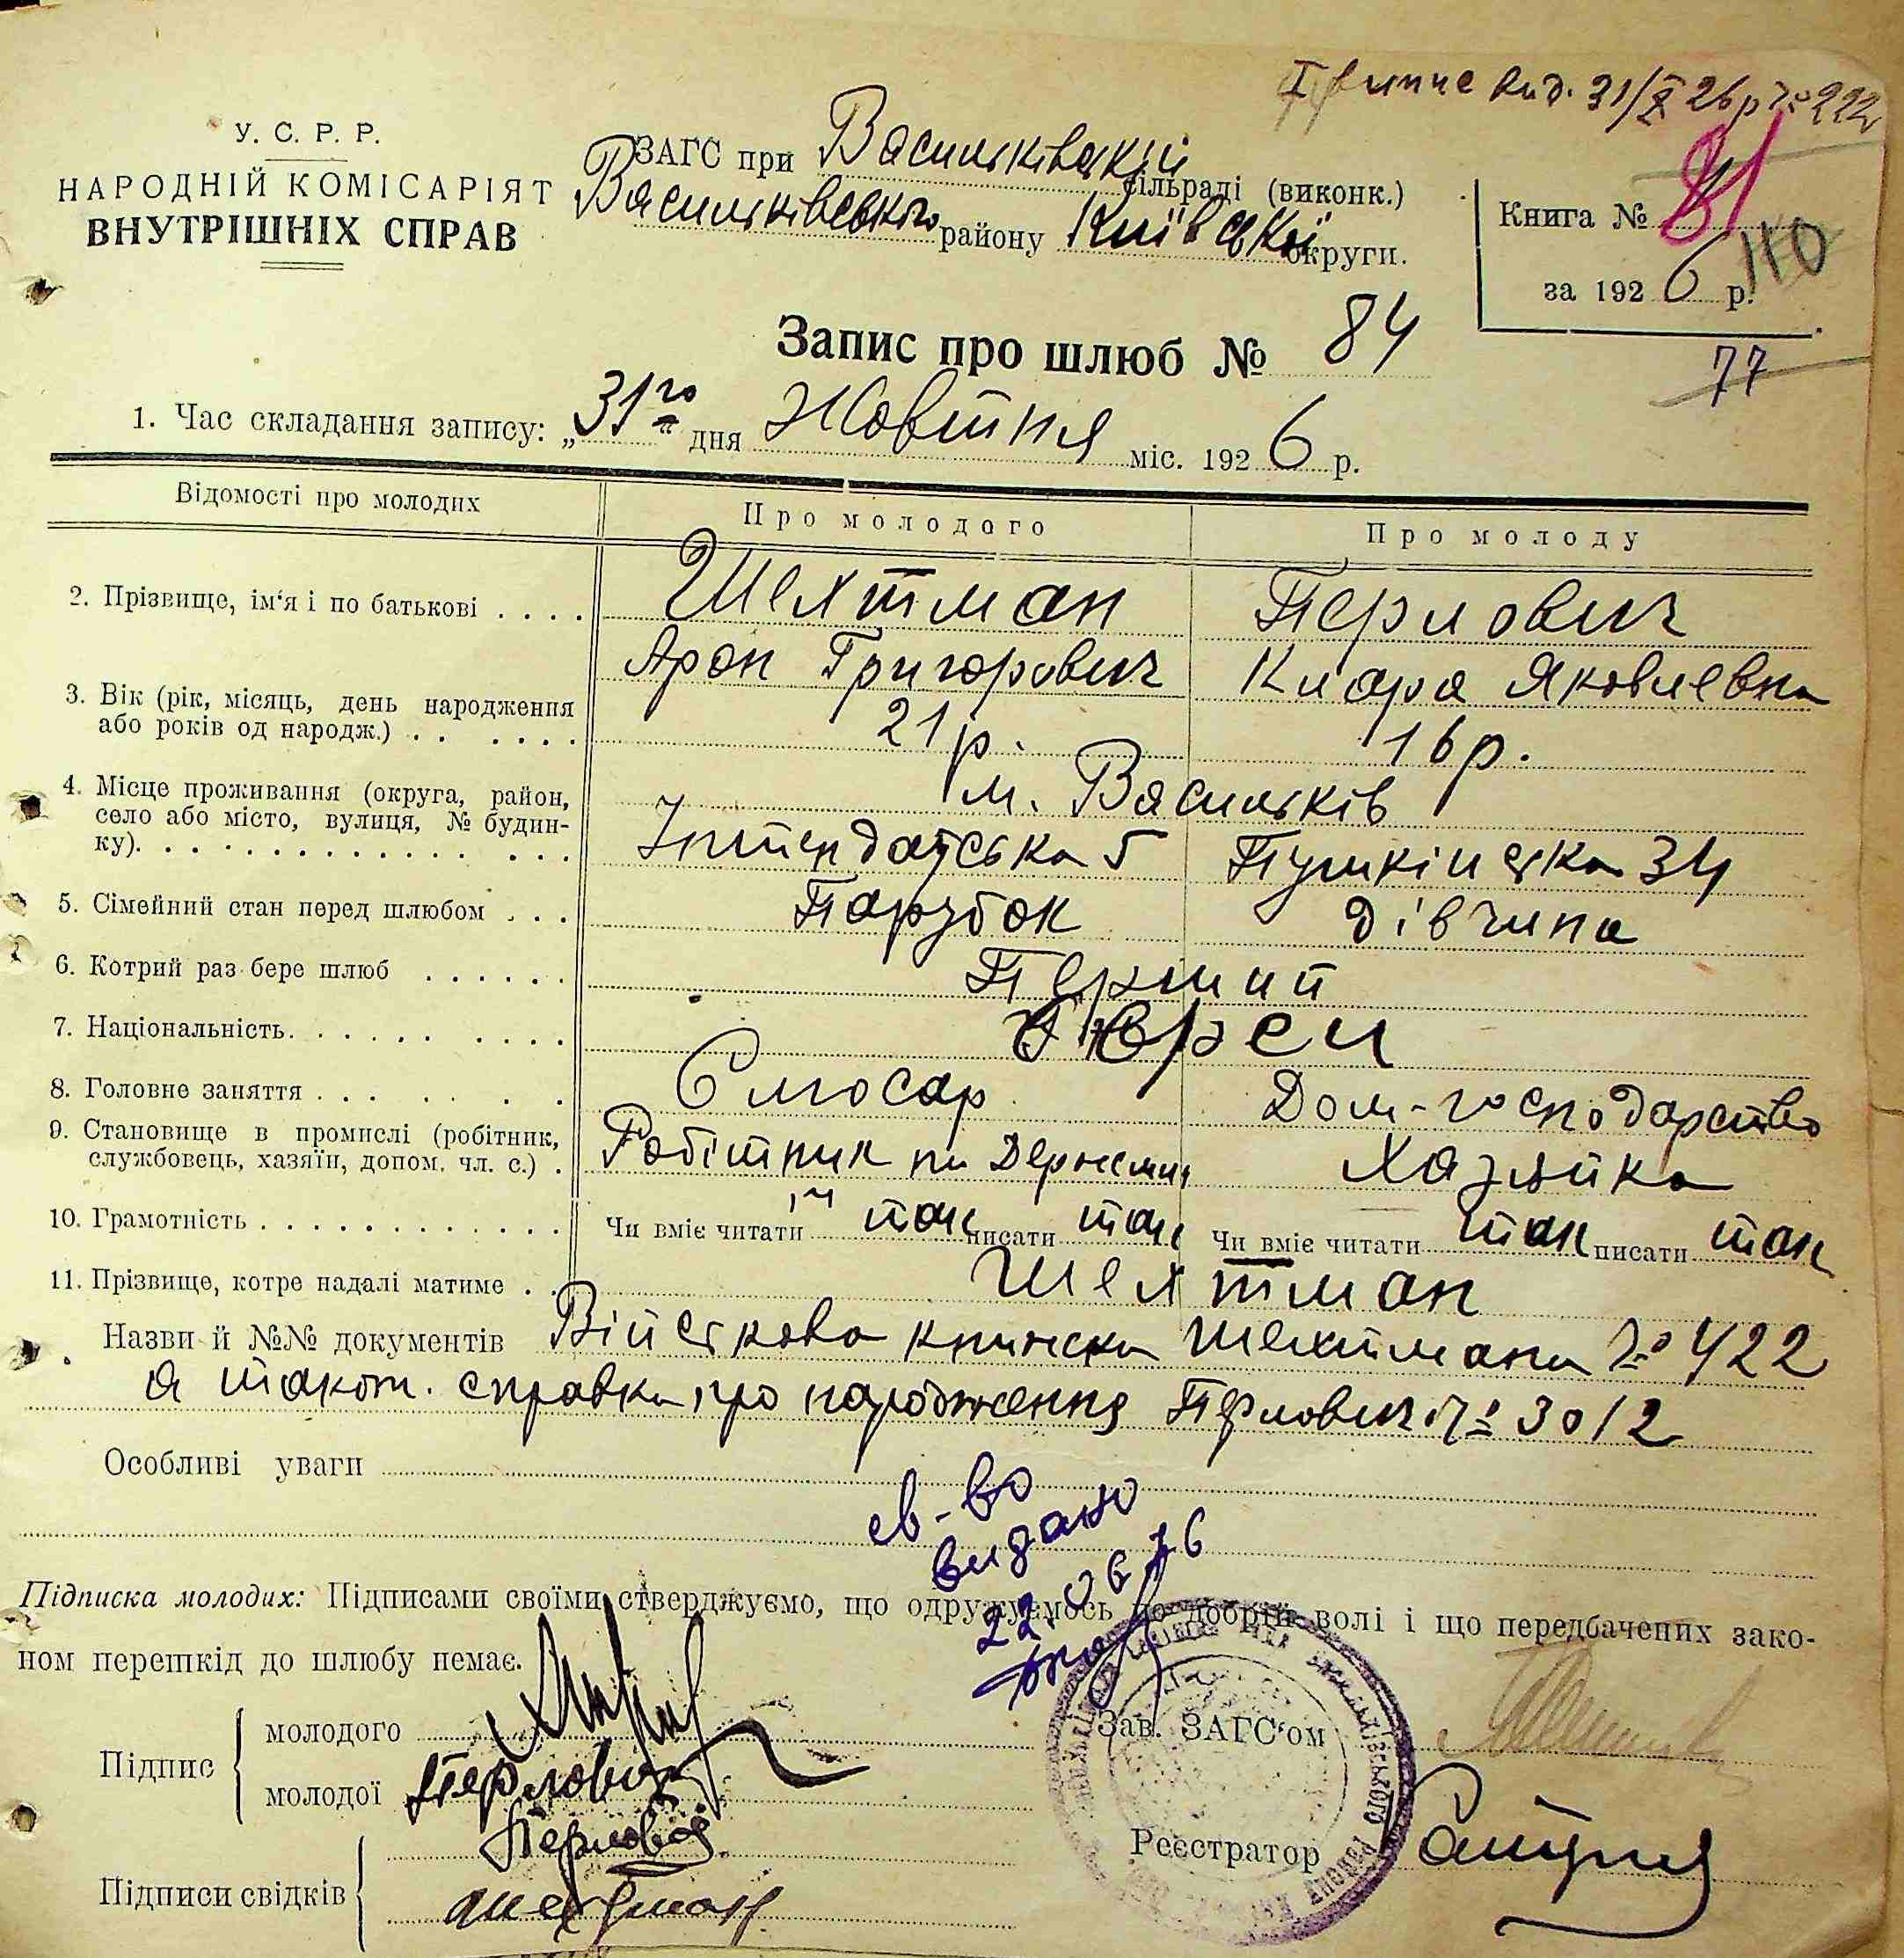 випис вид. 31/X 26 р № 222
У. С. Р. Р.
НАРОДНІЙ КОМІСАРІЯТ
ВНУТРІШНІХ СПРАВ
ЗАГС при Васильківській сільраді (виконк.)
Васильківського району Київської округи.
Книга №
110
за 1926 р.
Запис про шлюб № 84
77
1. Час складання запису: „31го“ дня Жовтня міс. 1926 р.
Відомості про молодих Про молодого Про молоду
2. Прізвище, ім'я і по батькові . . . . Шехтман Перлович
Арон Григорович Клара Яковлевна
3. Вік (рік, місяць, день народження
або років од народж.) . . . . . . 21 р. 16 р.
4. Місце проживання (округа, район, м. Васильків
село або місто, вулиця, № будин-
ку). . . . . . . . . . . . . . . . Інтендатська 5 Пушкінська 34
5. Сімейний стан перед шлюбом . . . Парубок дівчина
6. Котрий раз бере шлюб . . . . . . Перший
7. Національність. . . . . . . . . . Євреи
8. Головне заняття . . . . . . . Слюсар Дом-господарство
9. Становище в промислі (робітник,
службовець, хазяїн, допом. чл. с.) . Робітник Хазяйка
10. Грамотність . . . . . . . . . . . . Чи вміє читати так писати так Чи вміє читати так писати так
11. Прізвище, котре надалі матиме . . Шехтман
Назви й №№ документів Військова книжка Шехтмана № 422
а також. справка про народження Перлович № 3012
Особливі уваги
св-во
видано
22.06.76
Підписка молодих: Підписами своїми стверджуємо, що одружуємось по добрій волі і що передбачених зако-
ном перешкід до шлюбу немає.
Підпис
молодого
молодої Перлович
Зав. ЗАГС'ом
Підписи свідків
Перлович
Шехтман
Реєстратор